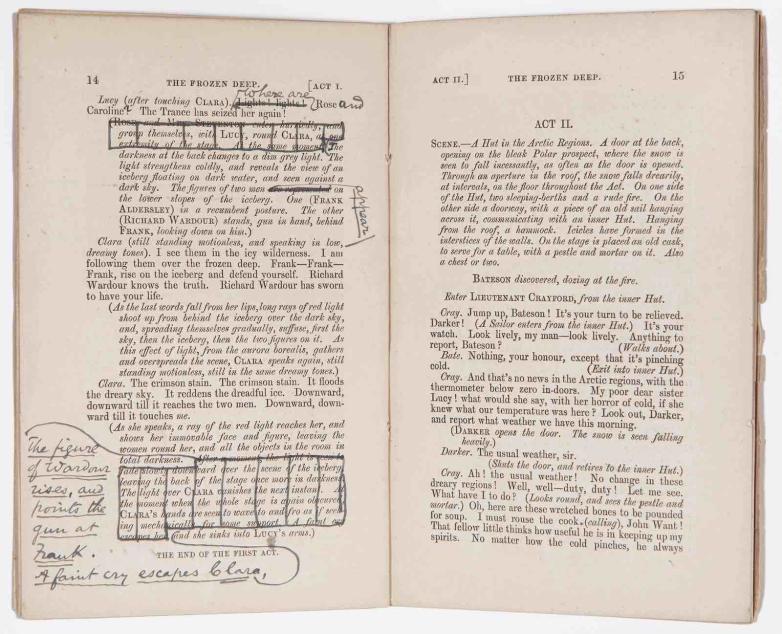 14
THE FROZEN DEEP.
[ACT I.
where are
Lucy (after touching CLARA). Lights! lights! Rose and
Caroline? The Trance has seized her again!
(ROSE and MRS. STEVENTON enter hurriedly, and
group themselves, with LUCY, round CLARA, at one
extremity of the stage. At the same moment the
darkness at the back changes to a dim grey light. The
light strengthens coldly, and reveals the view of an
iceberg floating on dark water, and seen against a
dark sky. The figures of two men are represented on
appear
the lower slopes of the iceberg. One (FRANK
ALDERSLEY) in a recumbent posture. The other
(RICHARD WARDOUR) stands, gun in hand, behind
FRANK, looking down on him.)
Clara (still standing motionless, and speaking in low,
dreamy tones). I see them in the icy wilderness. I am
following them over the frozen deep. Frank—Frank—
Frank, rise on the iceberg and defend yourself. Richard
Wardour knows the truth. Richard Wardour has sworn
to have your life.
(As the last words fall from her lips, long rays of red light
shoot up from behind the iceberg over the dark sky,
and, spreading themselves gradually, suffuse, first the
sky, then the iceberg, then the two figures on it. As
this effect of light, from the aurora borealis, gathers
and overspreads the scene, CLARA speaks again, still
standing motionless, still in the same dreamy tones.)
Clara. The crimson stain. The crimson stain. It floods
the dreary sky. It reddens the dreadful ice. Downward,
downward till it reaches the two men. Downward, down-
ward till it touches me.
(As she speaks, a ray of the red light reaches her, and
shows her immovable face and figure, leaving the
women round her, and all the objects in the room in
total darkness. After a moment the light is seen to
fade slowly downward over the scene of the iceberg,
leaving the back of the stage once more in darkness.
The light over CLARA vanishes the next instant. At
the moment when the whole stage is again obscured
CLARA'S hands are seen to wave to and fro as if seek-
ing mechanically for some support. A faint cry
escapes her (and she sinks into LUCY'S arms.)
THE END OF THE FIRST ACT.
The figure
of Wardour
rises, and
points the
gun at
Frank.
A faint cry escapes Clara,
ACT II.]
THE FROZEN DEEP.
15
ACT II.
SCENE.—A Hut in the Arctic Regions. A door at the back,
opening on the bleak Polar prospect, where the snow is
seen to fall incessantly, as often as the door is opened.
Through an aperture in the roof, the snow falls drearily,
at intervals, on the floor throughout the Act. On one side
of the Hut, two sleeping-berths and a rude fire. On the
other side a doorway, with a piece of an old sail hanging
across it, communicating with an inner Hut. Hanging
from the roof, a hammock. Icicles have formed in the
interstices of the walls. On the stage is placed an old cask,
to serve for a table, with a pestle and mortar on it. Also
a chest or two.
BATESON discovered, dozing at the fire.
Enter LIEUTENANT CRAYFORD, from the inner Hut.
Cray. Jump up, Bateson! It's your turn to be relieved.
Darker! (A Sailor enters from the inner Hut.) It's your
watch. Look lively, my man—look lively. Anything to
report, Bateson?
(Walks about.)
Bate. Nothing, your honour, except that it's pinching
cold.
(Exit into inner Hut.)
Cray. And that's no news in the Arctic regions, with the
thermometer below zero in-doors. My poor dear sister
Lucy! what would she say, with her horror of cold, if she
knew what our temperature was here? Look out, Darker,
and report what weather we have this morning.
(DARKER opens the door. The snow is seen falling
heavily.)
Darker. The usual weather, sir.
(Shuts the door, and retires to the inner Hut.)
Cray. Ah! the usual weather! No change in these
dreary regions! Well, well—duty, duty! Let me see.
What have I to do? (Looks round, and sees the pestle and
mortar.) Oh, here are these wretched bones to be pounded
for soup. I must rouse the cook. (calling), John Want!
That fellow little thinks how useful he is in keeping up my
spirits. No matter how the cold pinches, he always